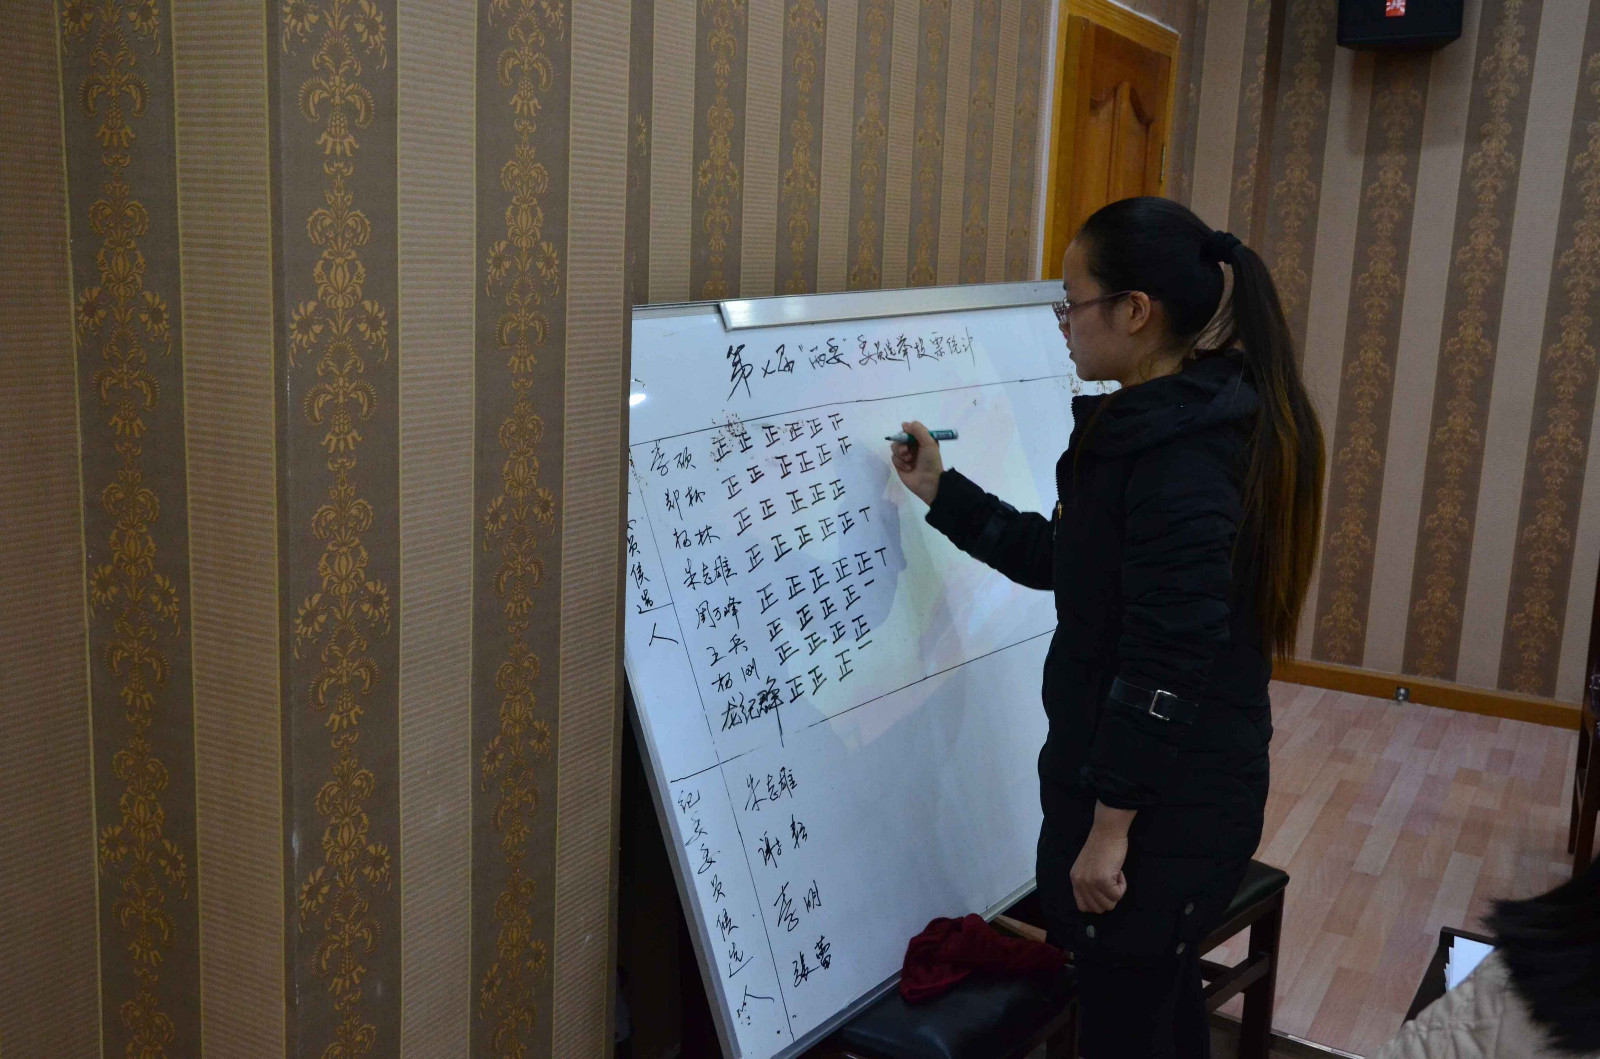 第七届"两委"委员选举投票统计
李硕 正正正正正正
郑松 正正正正正正
杨林 正正正正正
朱志雄 正正正正正丅
周万峰 正正正正正丅
王兵 正正正正一
杨刚 正正正正
龙纪群 正正正一
员候选人
纪委委员候选人
朱志雄
谢松
李明
张蕾